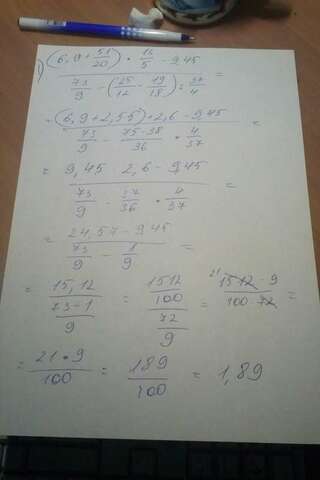 1) (6,9 + 51/20) • 13/5 - 9,45
73/9 - (25/12 - 19/18) : 37/4 =
= (6,9 + 2,55) • 2,6 - 9,45
73/9 - 75-38/36 • 4/37 =
= 9,45 · 2,6 - 9,45
73/9 - 37/36 • 4/37 =
= 24,57 - 9,45
73/9 - 1/9 =
= 15,12 / 73-1/9 = 1512/100 / 72/9 = 21 1512 · 9 / 100 · 72 =
= 21 • 9 / 100 = 189/100 = 1,89